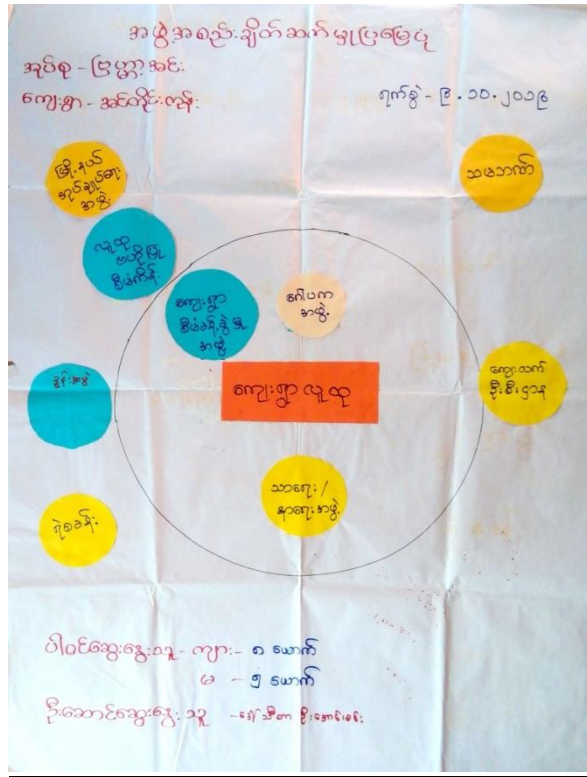 အဖွဲ့အစည်းချိတ်ဆက်မှုပြမြေပုံ
အုပ်စု - ဗြဟ္မာ့အင်း
ကျေးရွာ - အင်တိုင်းကုန်း
ရက်စွဲ - ၉.၁၀.၂၀၁၉
မြို့နယ်
အုပ်ချုပ်ရေး
အဖွဲ့
သမဘဏ်
လူထု
ဗဟိုပြု
စီမံကိန်း
ကျေးရွာ
စီမံခန့်ခွဲမှု
အဖွဲ့
ဂေါပက
အဖွဲ့
ကျေးရွာလူထု
ကျေးလက်
ဦးစီးဌာန
သာရေး/
နာရေးအဖွဲ့
ရဲစခန်း
ပါဝင်ဆွေးနွေးသူ - ကျား - ၈ ယောက်
မ - ၅ ယောက်
ဦးဆောင်ဆွေးနွေးသူ